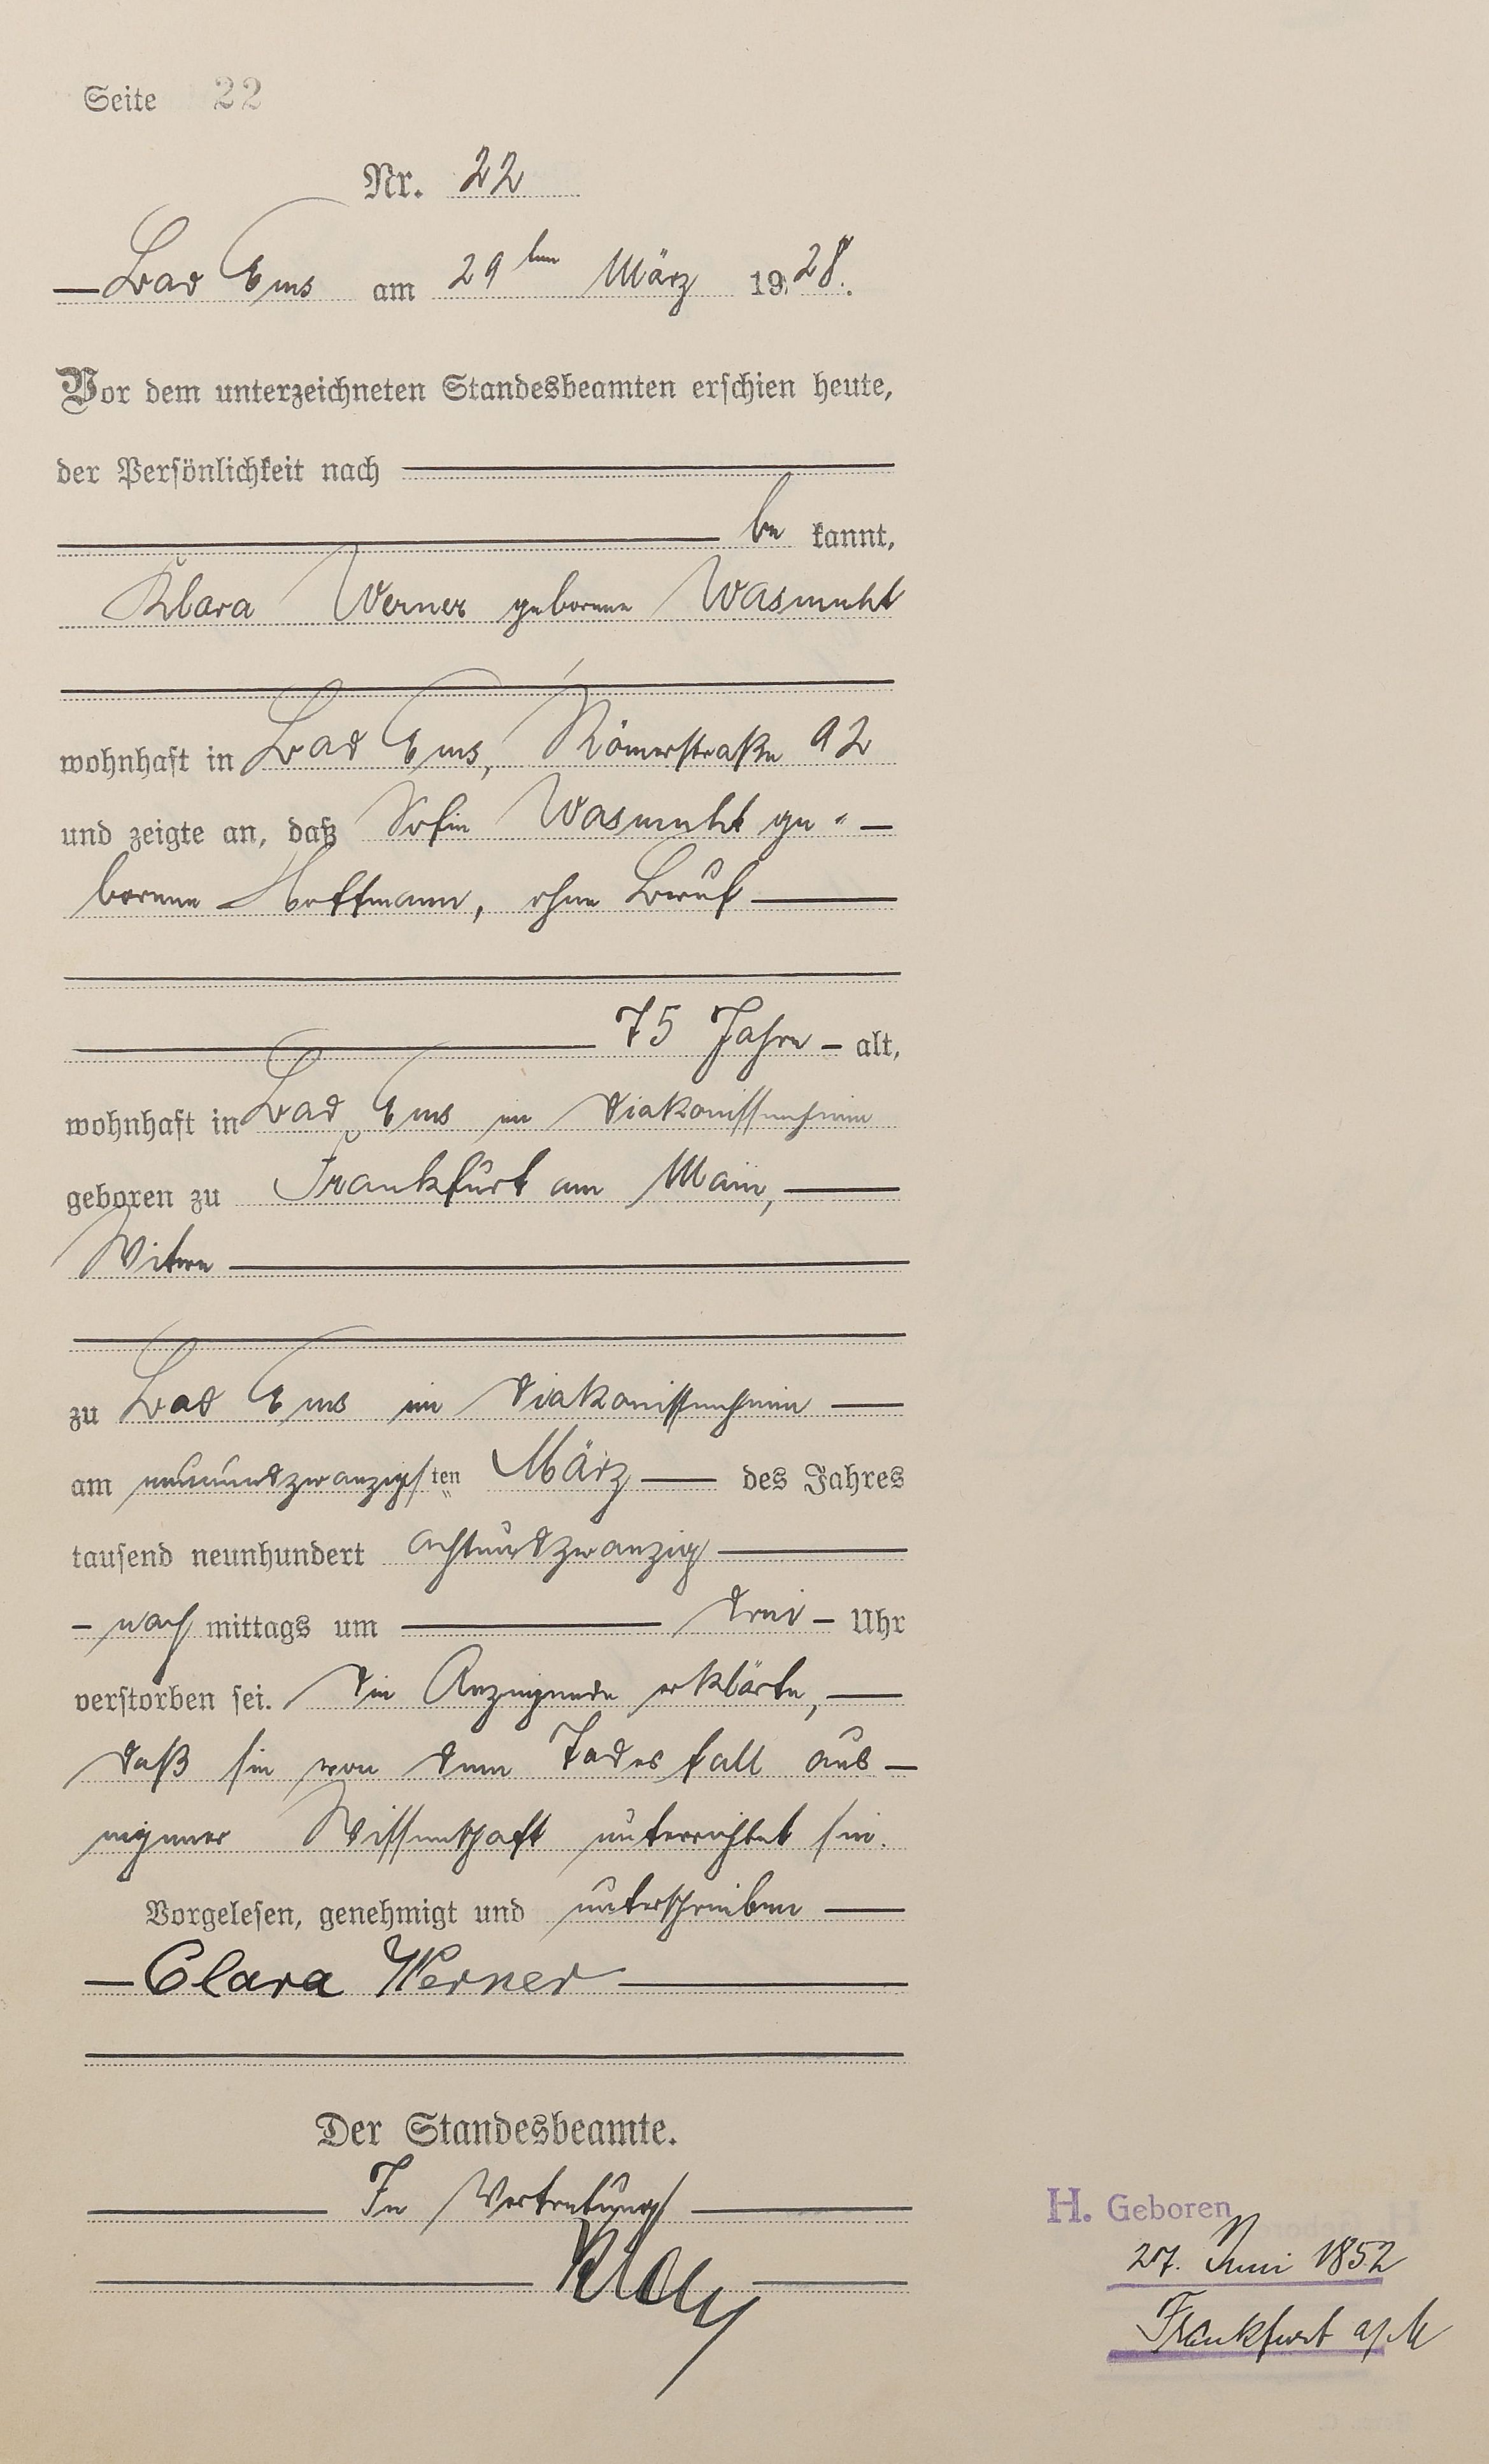 Seite 22
Nr. 22
Bad Ems am 29ten März 1928.
Vor dem unterzeichneten Standesbeamten erschien heute,
der Persönlichkeit nach
be kannt,
Klara Werner geborene Wasmuht
wohnhaft in Bad Ems, Römerstraße 92
und zeigte an, daß Sofie Wasmuht ge-
borene Hoffmann, ohne Beruf
75 Jahre - alt,
wohnhaft in Bad Ems im Diakonissenheim
geboren zu Frankfurt am Main,
Witwe
zu Bad Ems im Diakonissenheim
am neunundzwanzigsten März des Jahres
tausend neunhundert achtundzwanzig
- nach mittags um drei - Uhr
verstorben sei. Die Anzeigende erklärte,
daß sie von dem Todesfall aus
eigener Wissenschaft unterrichtet sei.
Vorgelesen, genehmigt und unterschrieben
Clara Werner
Der Standesbeamte.
In Vertretung
H. Geboren
27. Juni 1852
Frankfurt a/M